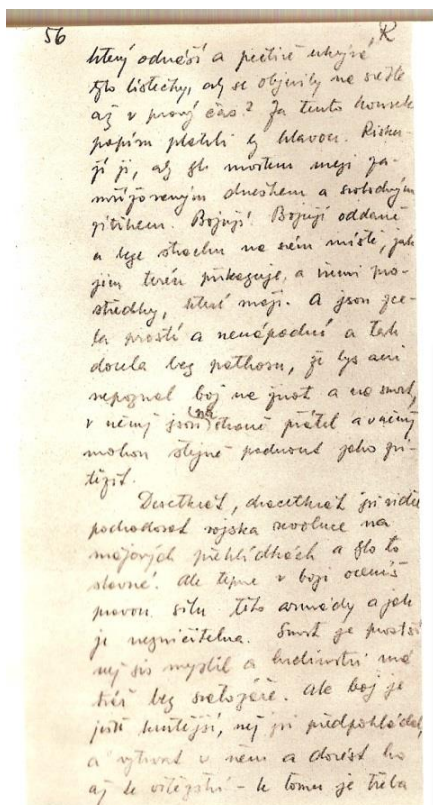 56 R
který odnáší a pečlivě ukrývá
tyto lístečky, aby se objevily na světle
až v pravý čas? Za tento kousek
papíru platili by hlavou. Risku-
jí ji, aby byli mostem mezi za-
mřížovaným dneškem a svobodným
zítřkem. Bojují. Bojují oddaně
a beze strachu na svém místě, jak
jim terén přikazuje, a všemi pro-
středky, které mají. A jsou zce-
la prostí a nenápadní a tak
docela bez pathosu, že bys ani
nepoznal boj na život a na smrt,
v němž jsou na straně přátel a v němž
mohou stejně padnout jako zví-
tězit.
Desetkrát, dvacetkrát jsi viděl
pochodovat vojska revoluce na
májových přehlídkách a bylo to
slavné. Ale teprve v boji oceníš
pravou sílu této armády a jak
je nezničitelná. Smrt je prostší
než sis myslil a hrdinství má
tvář bez svatozáře. Ale boj je
ještě krutější, než jsi předpokládal,
a vytrvat v něm a dovést ho
až k vítězství - k tomu je třeba